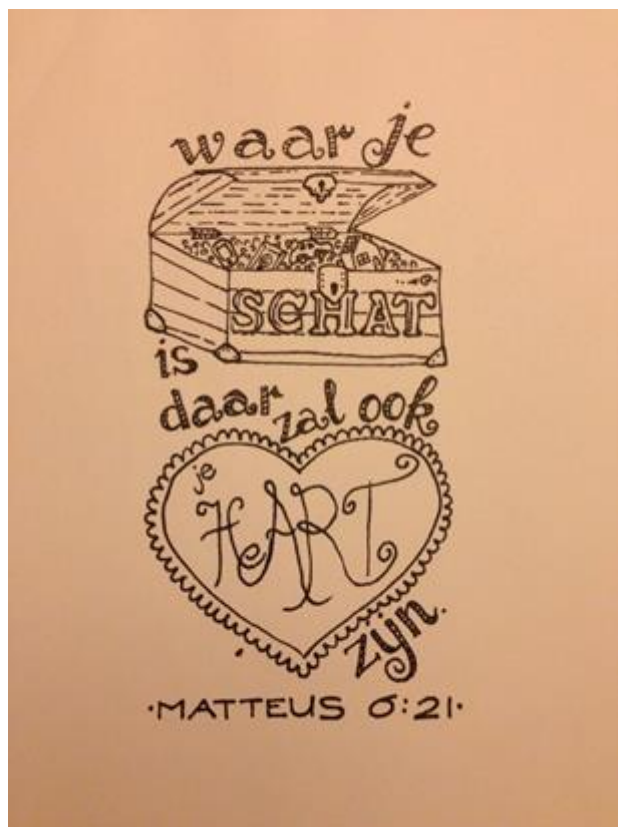 waar je
SCHAT
is
daar zal ook
je
HART
zijn.
·MATTEUS 6:21·